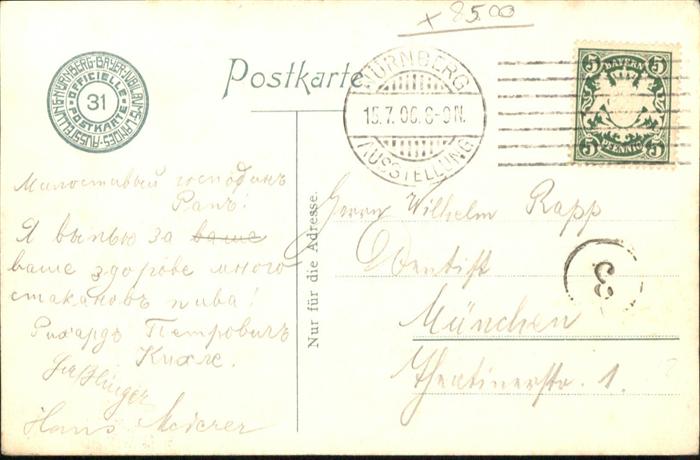 x 85.00
NÜRNBERG-BAYER.JUBILÄUMS-LANDES-AUSSTELLUNG
OFFICIELLE
31
POSTKARTE
Postkarte
NÜRNBERG
15.7.06.8-9N.
AUSSTELLUNG
5 5
BAYERN
PFENNIG
5 5
Милостивый господинъ
Рапъ!
Я выпью за ваше
ваше здорове много
стакановъ пива!
Рихардъ Петровичъ
Кихле.
Haßlinger
Hans Meierer
Nur für die Adresse.
Herrn Wilhelm Rapp
Dentist
München
Theatinerstr. 1.
3